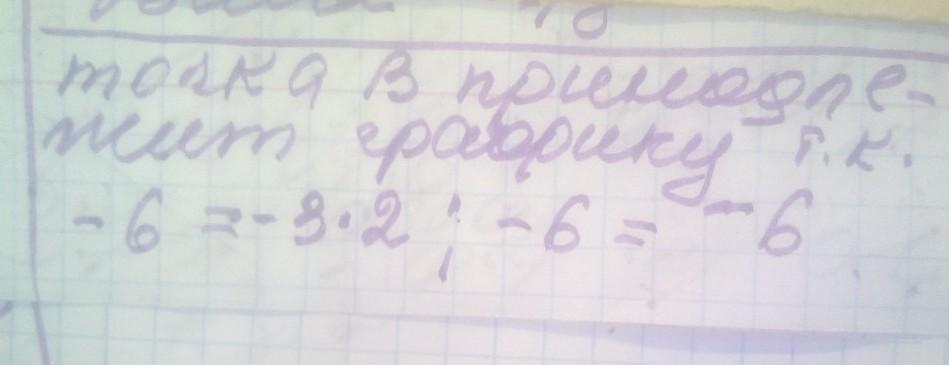 точка В принадле-
жит графику т.к.
-6 = -3·2 ; -6 = -6